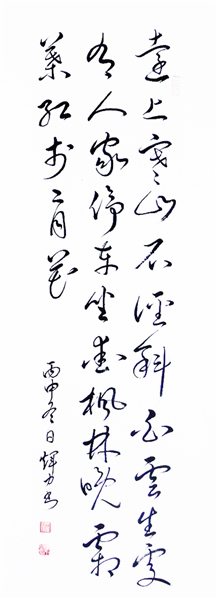 远上寒山石径斜白云生处
有人家停车坐爱枫林晚霜
叶红于二月花
丙申冬日辉力书